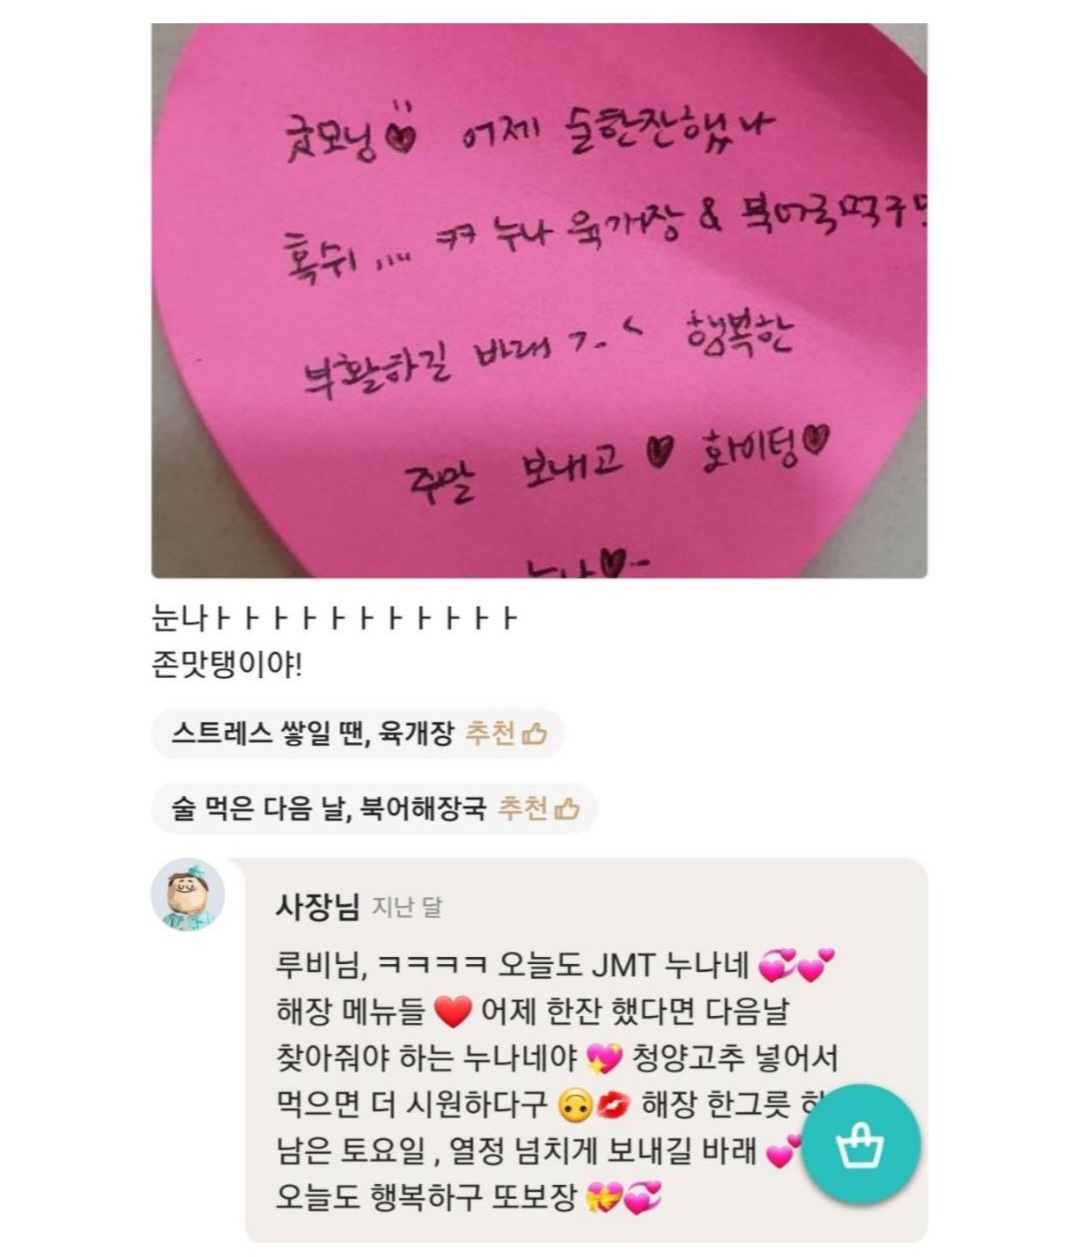 굿모닝♥ 어제 술한잔했나
혹쉬.... ㅋㅋ 누나 육개장 & 북어국먹구
부활하길 바래 ㄱ-ㅡ 행복한
주말 보내고 ♥ 화이팅♥
누나♥
눈나ㅏㅏㅏㅏㅏㅏㅏㅏㅏㅏㅏ
존맛탱이야!
스트레스 쌓일 땐, 육개장 추천
술 먹은 다음 날, 북어해장국 추천
사장님 지난 달
루비님, ㅋㅋㅋㅋ 오늘도 JMT 누나네 💞💕
해장 메뉴들 ❤️ 어제 한잔 했다면 다음날
찾아줘야 하는 누나네야 💖 청양고추 넣어서
먹으면 더 시원하다구 🙃💋 해장 한그릇
남은 토요일 , 열정 넘치게 보내길 바래 💕
오늘도 행복하구 또보장 💝💞